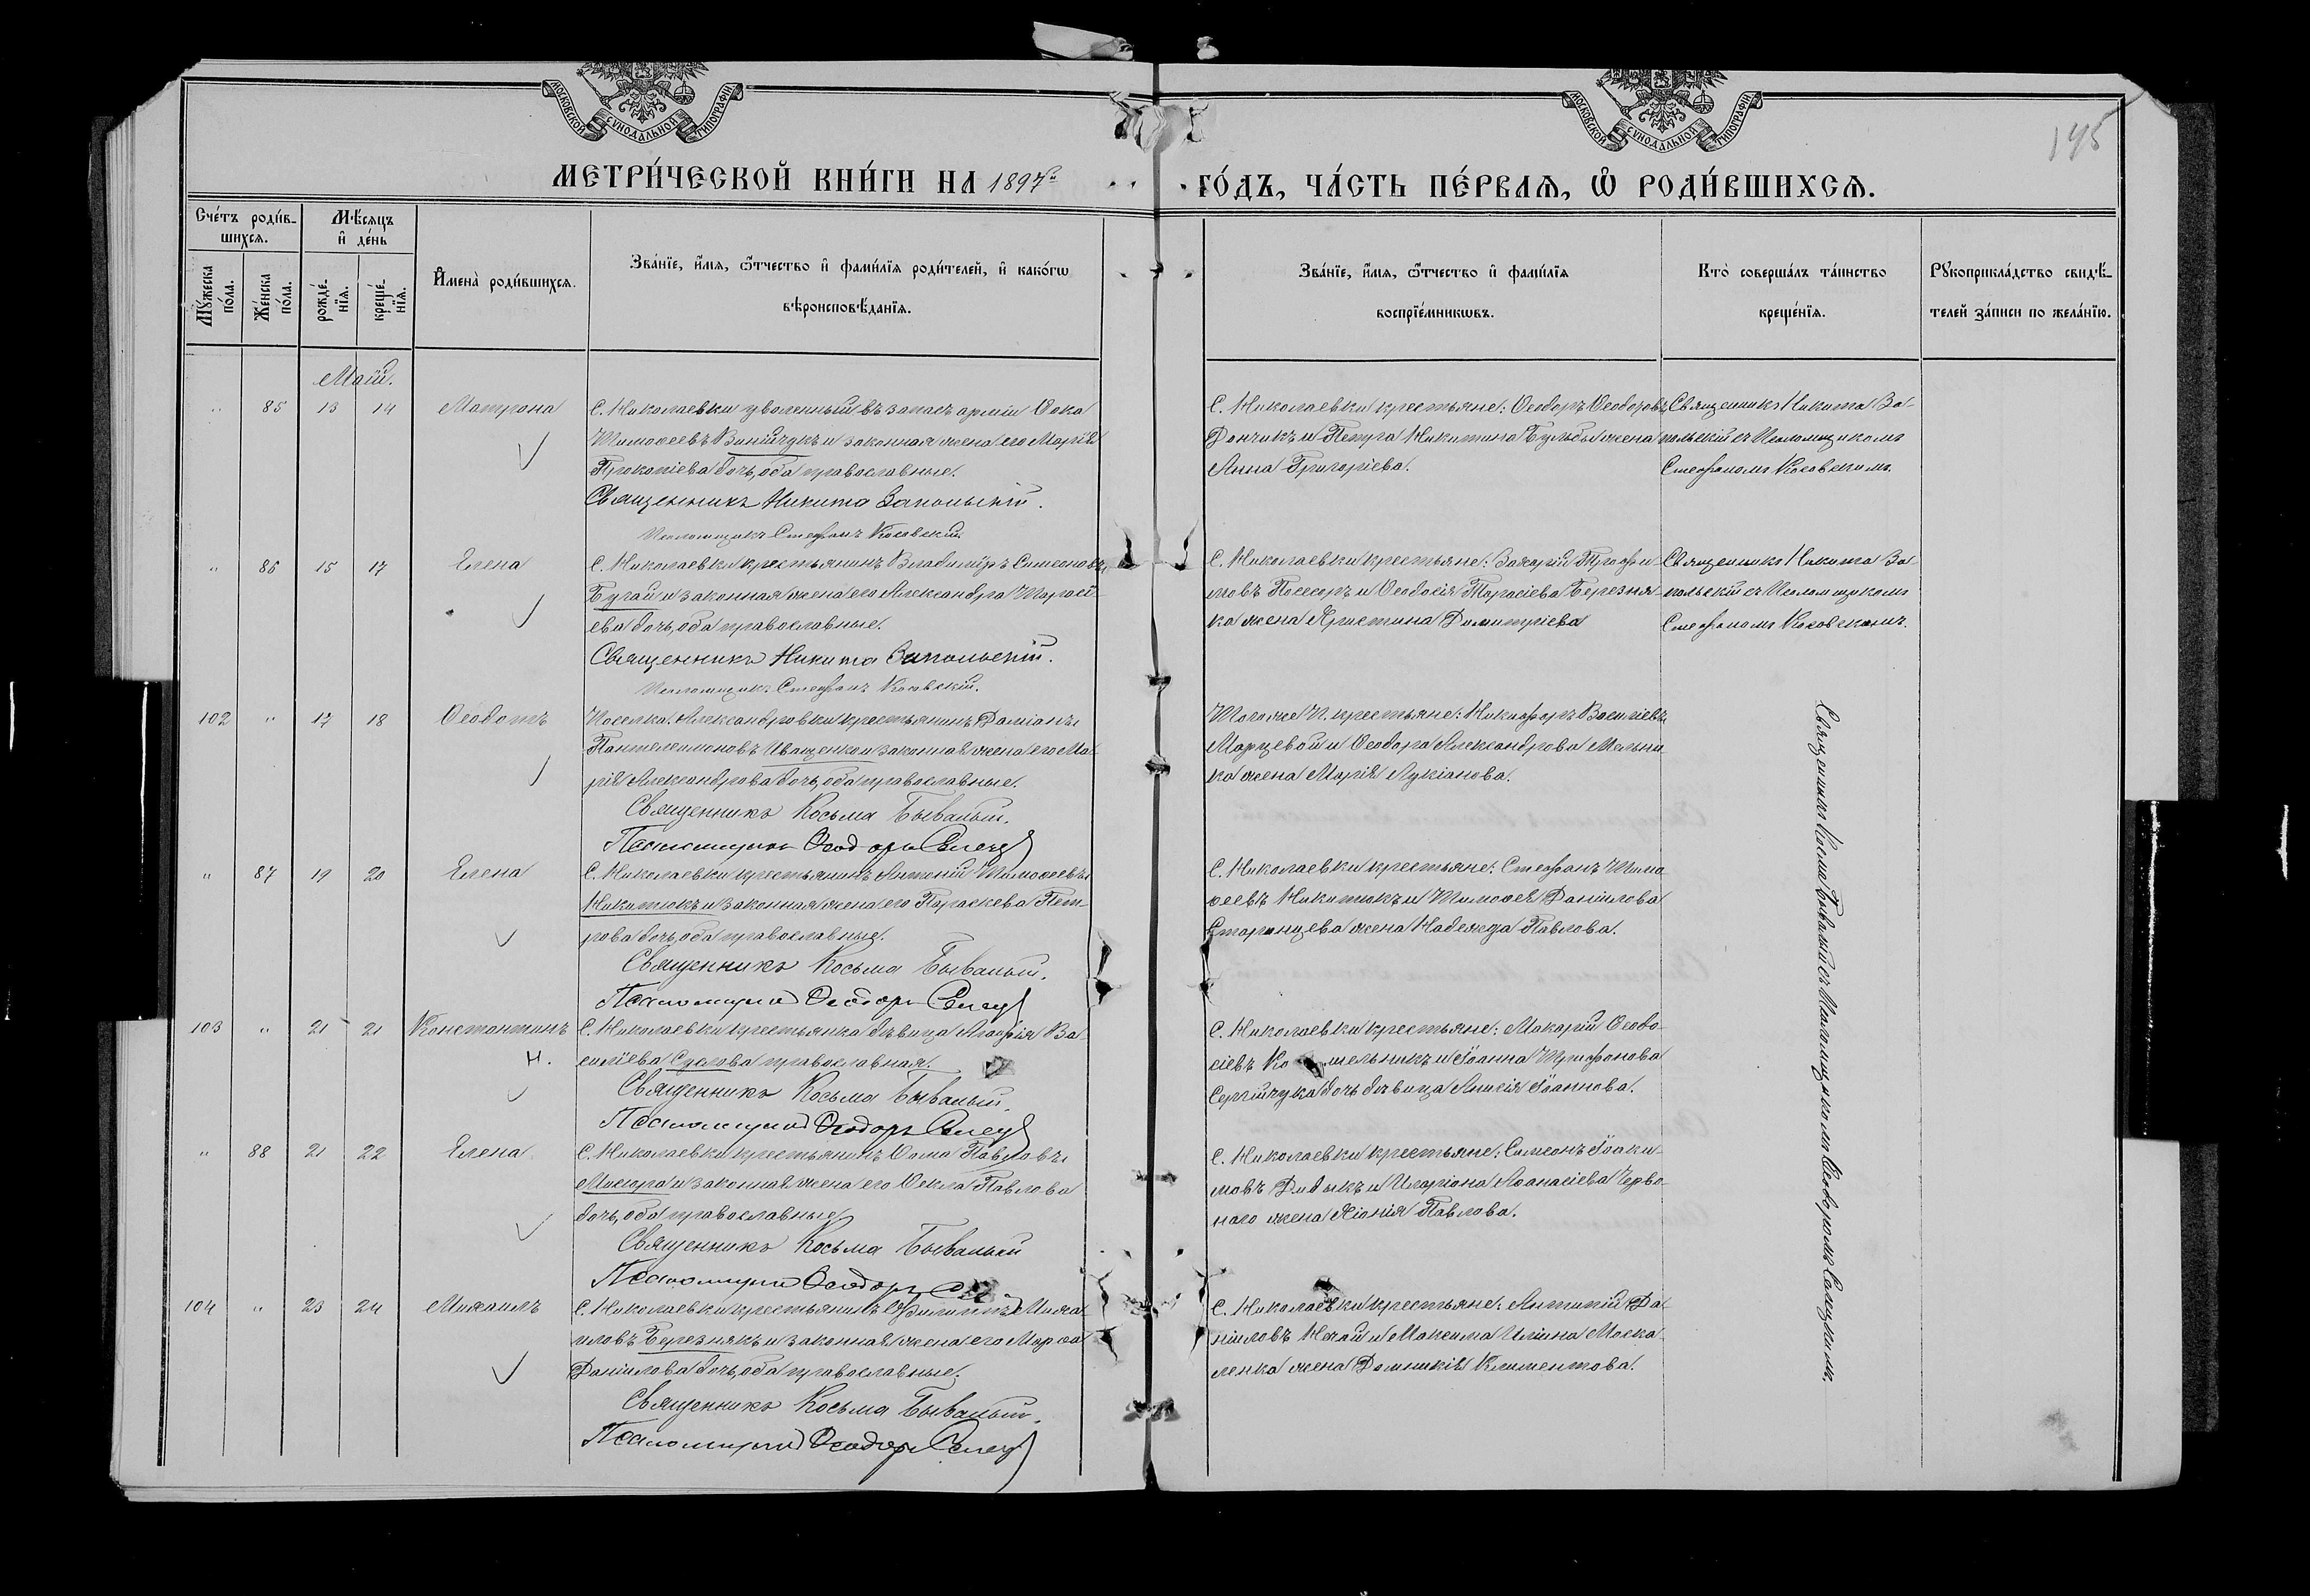 МОСКОВСКОЙ СѴНОДАЛЬНОЙ ТИПОГРАФІИ
МОСКОВСКОЙ СѴНОДАЛЬНОЙ ТИПОГРАФІИ
145
МЕТРИ́ЧЕСКОЙ КНИ́ГИ НА 1897й
ГО́ДЪ, ЧА́СТЬ ПЕ́РВАЯ, Ѡ РОДИ́ВШИХСЯ.
Сче́тъ роди́в-
шихся.
Мꙋ́жеска по́ла.
Же́нска по́ла.
Мѣ́сяцъ
и҆ де́нь
рожде́-
нїя.
креще́-
нїя.
И҆мена̀ роди́вшихся.
Зва́нїе, и҆́мя, ѻ҆́тчество и҆ фами́лїя роди́телей, и҆ како́гѡ
вѣроисповѣ́данїя.
Зва́нїе, и҆́мя, ѻ҆́тчество и҆ фами́лїя
воспрїе́мникѡвъ.
Кто̀ соверша́лъ та́инство
креще́нїя.
Рꙋкоприкла́дство свидѣ́-
телей за́писи по жела́нїю.
Май.
" 85 13 14 Матрона
С. Николаевки уволенный въ запасъ арміи Ѳока
Тимоѳеевъ Винничукъ и законная жена его Марія
Прокопіева дочь, оба православные.
Священникъ Никита Запольскій.
Псаломщикъ Стефанъ Косовскій.
С. Николаевки крестьяне: Ѳеодоръ Ѳеодоровъ
Дончикъ и Петра Никитина Бульбы жена
Анна Григоріева.
Священникъ Никита За-
польскій съ Псаломщикомъ
Стефаномъ Косовскимъ.
" 86 15 17 Елена
С. Николаевки крестьянинъ Владиміръ Симеоновъ
Бугай и законная жена его Александра
ева дочь, оба православные.
Священникъ Никита Запольскій.
Псаломщикъ Стефанъ Косовскій.
С. Николаевки крестьяне: Захарій Трофи-
мовъ Посесоръ и Ѳеодосія Тарасіева Березня-
ка жена Христина Димитріева
Священникъ Никита За-
польскій съ Псаломщикомъ
Стефаномъ Косовскимъ.
102 " 17 18 Ѳеодотъ
Поселка Александровки крестьянинъ Даміанъ
Пантелеимоновъ Иващенко и законная жена его Ма-
рія Александрова дочь, оба православные.
Священникъ Косьма Бывалый.
Псаломщикъ Ѳеодоръ Селец
Того же П. крестьяне: Никифоръ Василіевъ
Марцевой и Ѳеодора Александрова Мельни-
ка жена Марія Лукіанова.
Священникъ Косьма Бывалый съ Псаломщикомъ Ѳеодоромъ Селецкимъ.
" 87 19 20 Елена
С. Николаевки крестьянинъ Антоній Тимоѳеевъ
Никитюкъ и законная жена его Параскева Пет-
рова дочь, оба православные.
Священникъ Косьма Бывалый.
Псаломщикъ Ѳеодоръ Селец
С. Николаевки крестьяне: Стефанъ Тимо-
ѳеевъ Никитюкъ и Тимоѳея Даніилова
Старинцева жена Надежда Павлова.
103 " 21 21 Константинъ
Н.
С. Николаевки крестьянка дѣвица Агафія Ва-
силіева православная.
Священникъ Косьма Бывалый.
Псаломщикъ Ѳеодоръ Селец
С. Николаевки крестьяне: Макарій Ѳеодо-
сіевъ Ко тельникъ и Іоанна Трифонова
Сергійчука дочь дѣвица Анисія Іоаннова.
" 88 21 22 Елена
С. Николаевки крестьянинъ Ѳома Павловъ
Мисюра и законная жена его Ѳекла Павлова
дочь, оба православные
Священникъ Косьма Бывалый
Псаломщикъ Ѳеодоръ
С. Николаевки крестьяне: Симеонъ Іоаки-
мовъ Дидыкъ и Иларіона Аѳанасіева Черво-
наго жена Хіонія Павлова.
104 " 23 24 Михаилъ
С. Николаевки крестьянинъ Филиппъ Миха-
иловъ Березнякъ и законная жена его Марѳа
Даніилова дочь, оба православные.
Священникъ Косьма Бывалый.
Псаломщикъ Ѳеодоръ Селец
С. Николаевки крестьяне: Антипій Да-
ніиловъ Нечай и Максима Иліина Моска-
ленка жена Домникія Климентова.